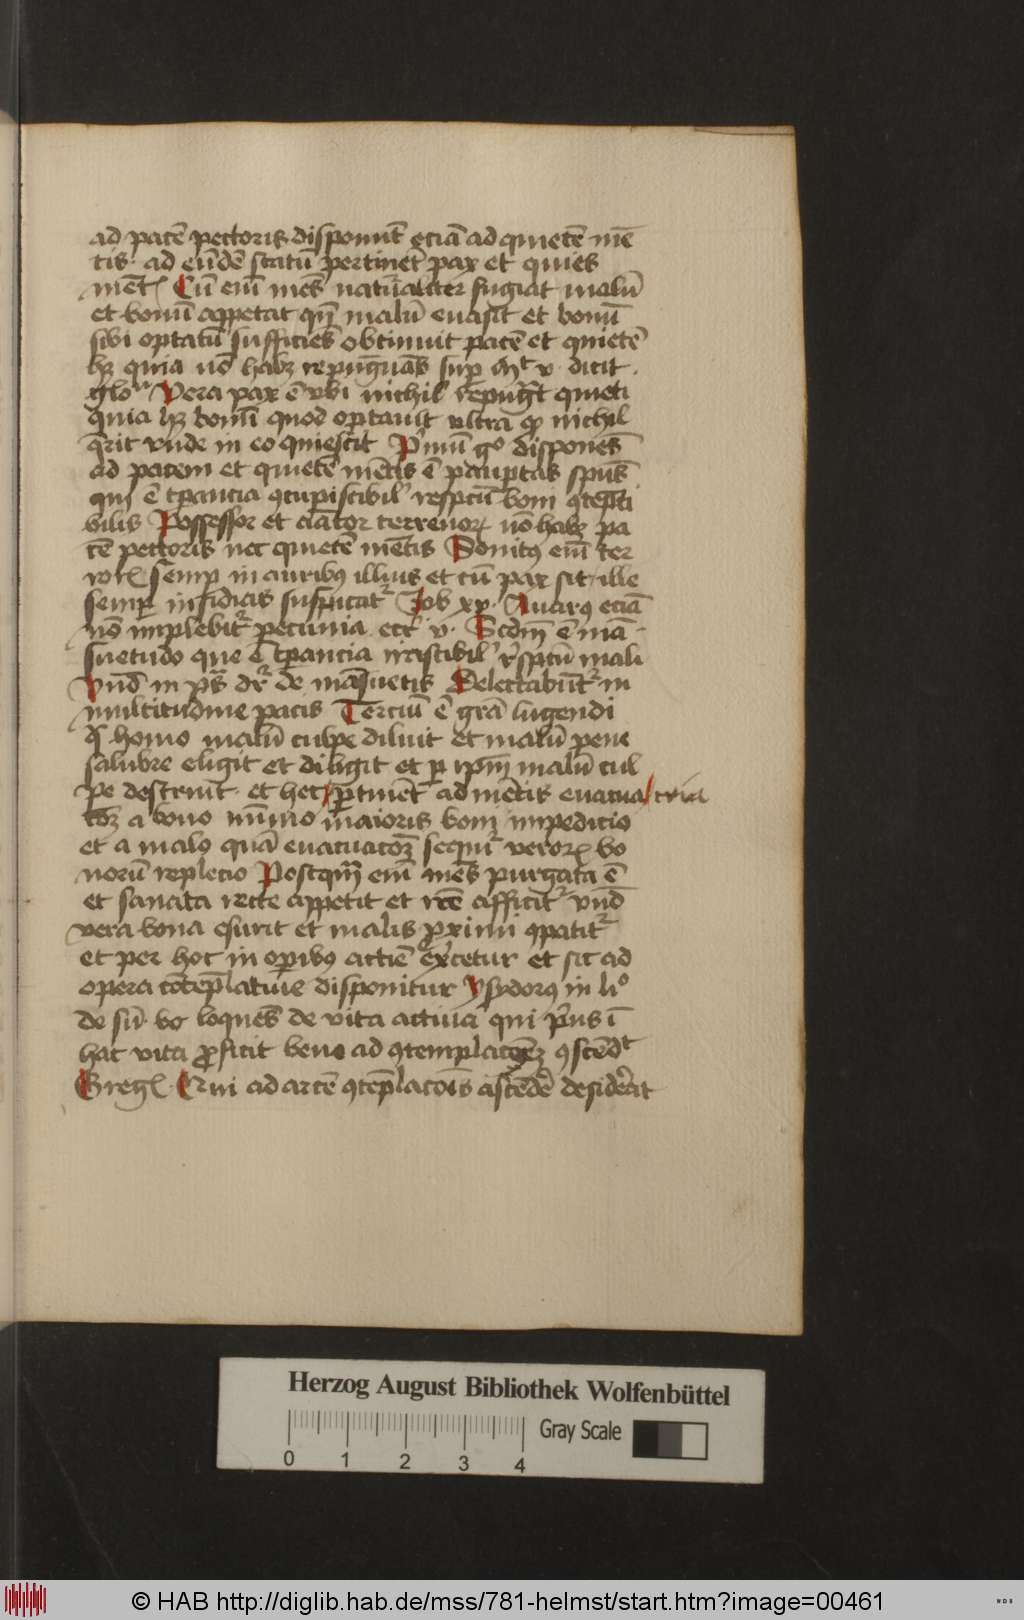 ad pacē pectoris disponūt eciā ad quietē mē
tis ad eūdē statū pertinet pax et quies
mēt Cū eim̄ mēs naturaliter fugiat malū
et bonū appetat qn̄ malū euasit et bonū
sibi optatū sufficiēs obtinuit pacē et quietē
hꝫ quia nō habꝫ repugnās sup mt v dicit
glo Vera pax ē vbi nichil repugt quieti
quia hꝫ bonū quod optauit vltra qd nichil
q̄rit vnde in eo quiescit P'mū gͦ disponēs
ad pacem et quietē mētis ē paup̄tas spūs
qui ē tp̄ancia ꝯcupiscibil' respctū boni ꝯtēpti
bilis Possessor et amator terrenoꝝ nō habꝫ pa
cē pectoris nec quietē mētis Sonitꝰ eim̄ ter
roꝝ semp̄ in auribꝰ illius et cū pax sit ille
semp̄ insidias suspicatʳ Job xv Auarꝰ eciā
nō implebitʳ pecunia ecc' v Scdm̄ ē mā
suetudo que ē tp̄ancia irascibil' rˢpctū mali
Vnd̄ in ps̄ drʳ de māsuetis Delectabūtʳ in
multitudine pacis Terciū ē grā lugendi
qͥ homo malū culpe diluit et malū pene
salubre eligit et diligit et ꝑ ip̄m malū cul
pe destruit et hec ꝑtinēt ad mētis euacua tria
coꝫ a bono minimo maioris boni impeditio
et a malo quā euacuacoꝫ sequiʳ veroꝝ bo
norū repletio Postqm̄ eim̄ mēs purgata ē
et sanata recte appetit et rcē afficitʳ vnd̄
vera bona esurit et malis ꝓximi ꝯpatitʳ
et per hoc in oꝑibꝰ actiē ex̄cetur et sic ad
opera cōtēplatiue disponitur Ysydorꝰ in liͦ
de sū bo loquēs de vita actiua qui pͥus ī
hac vita ꝓficit bene ad ꝯtemplacoēꝫ ꝯscēdᵗ
Greg Qui ad arcē ꝯtēplacois ascēdē desiderāt
Herzog August Bibliothek Wolfenbüttel
Gray Scale
0 1 2 3 4
© HAB http://diglib.hab.de/mss/781-helmst/start.htm?image=00461